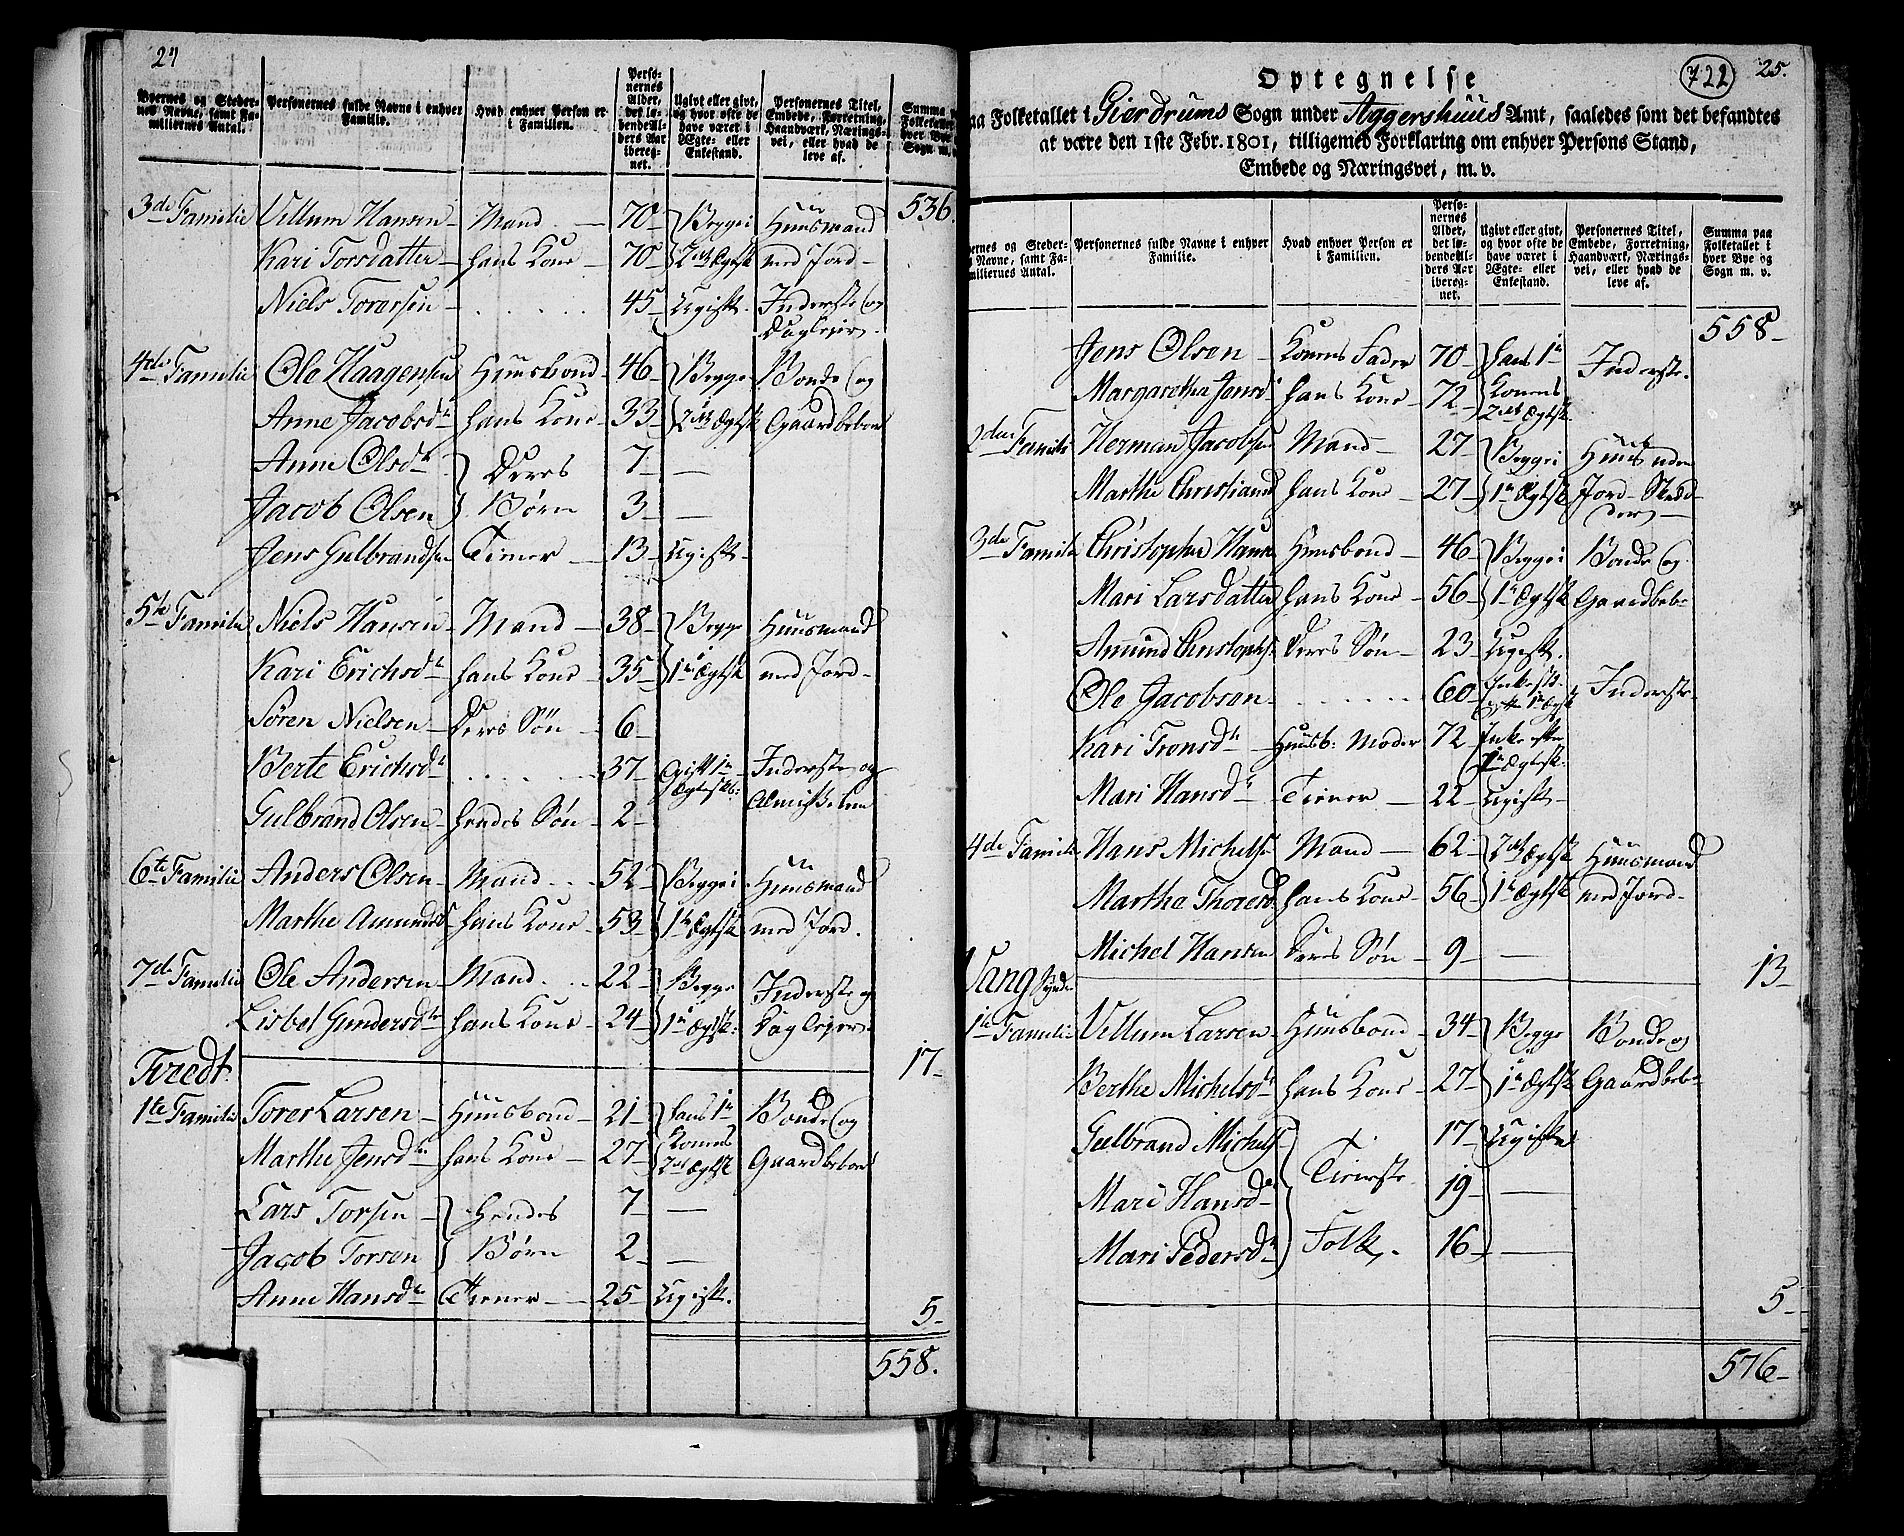 24
Byernes og Stedernes Navne, samt Familiernes Antal.
Personernes fulde Navne i enhver Familie.
Hvad enhver Person er i Familien.
Personernes Alder, det løbende Alders Aar iberegnet.
Ugivt eller givt, og hvor ofte de have været i Ægte- eller Enkestand.
Personernes Titel, Embede, Forretning, Haandværk, Næringsvei, eller hvad de leve af.
Summa Folketallet hver Bye Sogn m.
536.
3de Familie Villum Hansen Mand 70 Begge i Huusmand
Kari Torsdatter hans Kone 70 2det Ægtsk med Jord
Niels Torersen 45 Ugift Inderste og
Daglejer
4de Familie Ole Haagensen Huusbond 46 Begge Bonde og
Anne Jacobsdr hans Kone 33 2det Ægtsk Gaardbeboer
Anne Olsdr Deres 7
Jacob Olsen Børn 3
Jens Gulbrandsen Tiener 13 Ugift
5te Familie Niels Hansen Mand 38 Begge Huusmand
Kari Erichsdr hans Kone 35 1te Ægtsk med Jord
Søren Nielsen Deres Søn 6
Berte Erichsdr 37 Gift 1te Inderste og
Ægtsk:
Gulbrand Olsen hendes Søn 2
6te Familie Anders Olsen Mand 52 Begge i Huusmand
Marthe Amundsd hans Kone 53 1te Ægtsk med Jord.
7de Familie Ole Andersen Mand 22 Begge Inderste og
Lisbet Gundersdtr hans Kone 24 1te Ægtsk: Daglejer
17
Tredt.
1te Familie Torer Larsen Huusbond 21 hans 1te Bonde og
Marthe Jensdtr hans Kone 27 Konens 2det Ægtsk Gaardbeboer
Lars Torsen Hendes 7
Jacob Torsen Børn 2
Anne Hansdtr Tiener 25 Ugift.
5
558.
722
25.
Optegnelse
paa Folketallet i Gierdrums Sogn under Aggershuus Amt, saaledes som det befandtes
at være den 1ste Febr. 1801, tilligemed Forklaring om enhver Persons Stand,
Embede og Næringsvei, m. v.
ernes og Steder- Navne, samt Familiernes Antal.
Personernes fulde Navne i enhver Familie.
Hvad enhver Person er i Familien.
Personernes Alder, det løbende Alders Aar iberegnet.
Ugivt eller givt, og hvor ofte de have været i Ægte- eller Enkestand.
Personernes Titel, Embede, Forretning, Haandværk, Næringsvei, eller hvad de leve af.
Summa paa Folketallet i hver Bye og Sogn m. v.
558
Jens Olsen Konens Fader 70 hans 1te Inderste.
Margaretha Jensd hans Kone 72 Konens
2det Ægtsk
2den Familie Herman Jacobsen Mand 27 Begge i Huus uden
Marthe Christiansd hans Kone 27 1te Ægtsk Jord
3de Familie Christopher Hansen Huusbond 46 Begge i Bonde og
Mari Larsdatter hans Kone 56 1te Ægtsk Gaardbeb
Amund Christophs Deres Søn 23 Ugift.
Ole Jacobsen 60 Inderste
Kari Tronsdr Huusb: Moder 72
1te Ægtsk.
Mari Hansdr Tiener 22 Ugift
4de Familie Hans Michels Mand 62 2det Ægtsk Huusmand
Martha Thoresd hans Kone 56 1te Ægtsk med Jord
Michel Hansen Deres Søn 9
13
Vang
1te Familie Villum Larsen Huusbond 34 Begge Bonde og
Berthe Michelsdr hans Kone 27 1te Ægtsk Gaardbeb
Gulbrand Michels 17 Ugifte
Mari Hansdr Tieneste 19
Mari Pedersdr Folk. 16
5
576